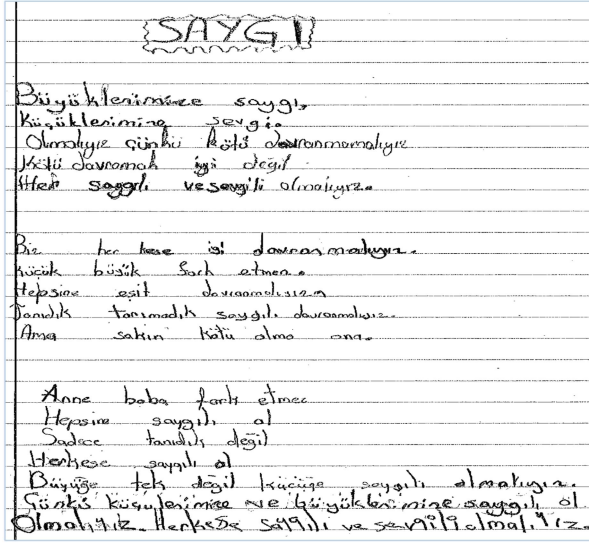 SAYGI
Büyüklerimize saygı,
Küçüklerimine sevgi.
Olmalıyız çünkü kötü davranmamalıyız
Kötü davramak iyi değil
Hep saygılı ve sevgili olmalıyız.
Biz her kese iyi davranmalıyız.
Küçük büyük fark etmen.
Hepsine eşit davranmalıyız
Tanıdık tanımadık saygılı davranmalıyız.
Ama sakın kötü olma ona.
Anne baba fark etmez
Hepsine saygılı ol
Sadece tanıdık değil
Herkese saygılı ol
Büyüğe tek değil küçüğe saygılı olmalıyız.
Çünkü küçüklerimize ve büyüklerimine saygılı ol
Olmalıyız. Herkese saygılı ve sevgili olmalıyız.